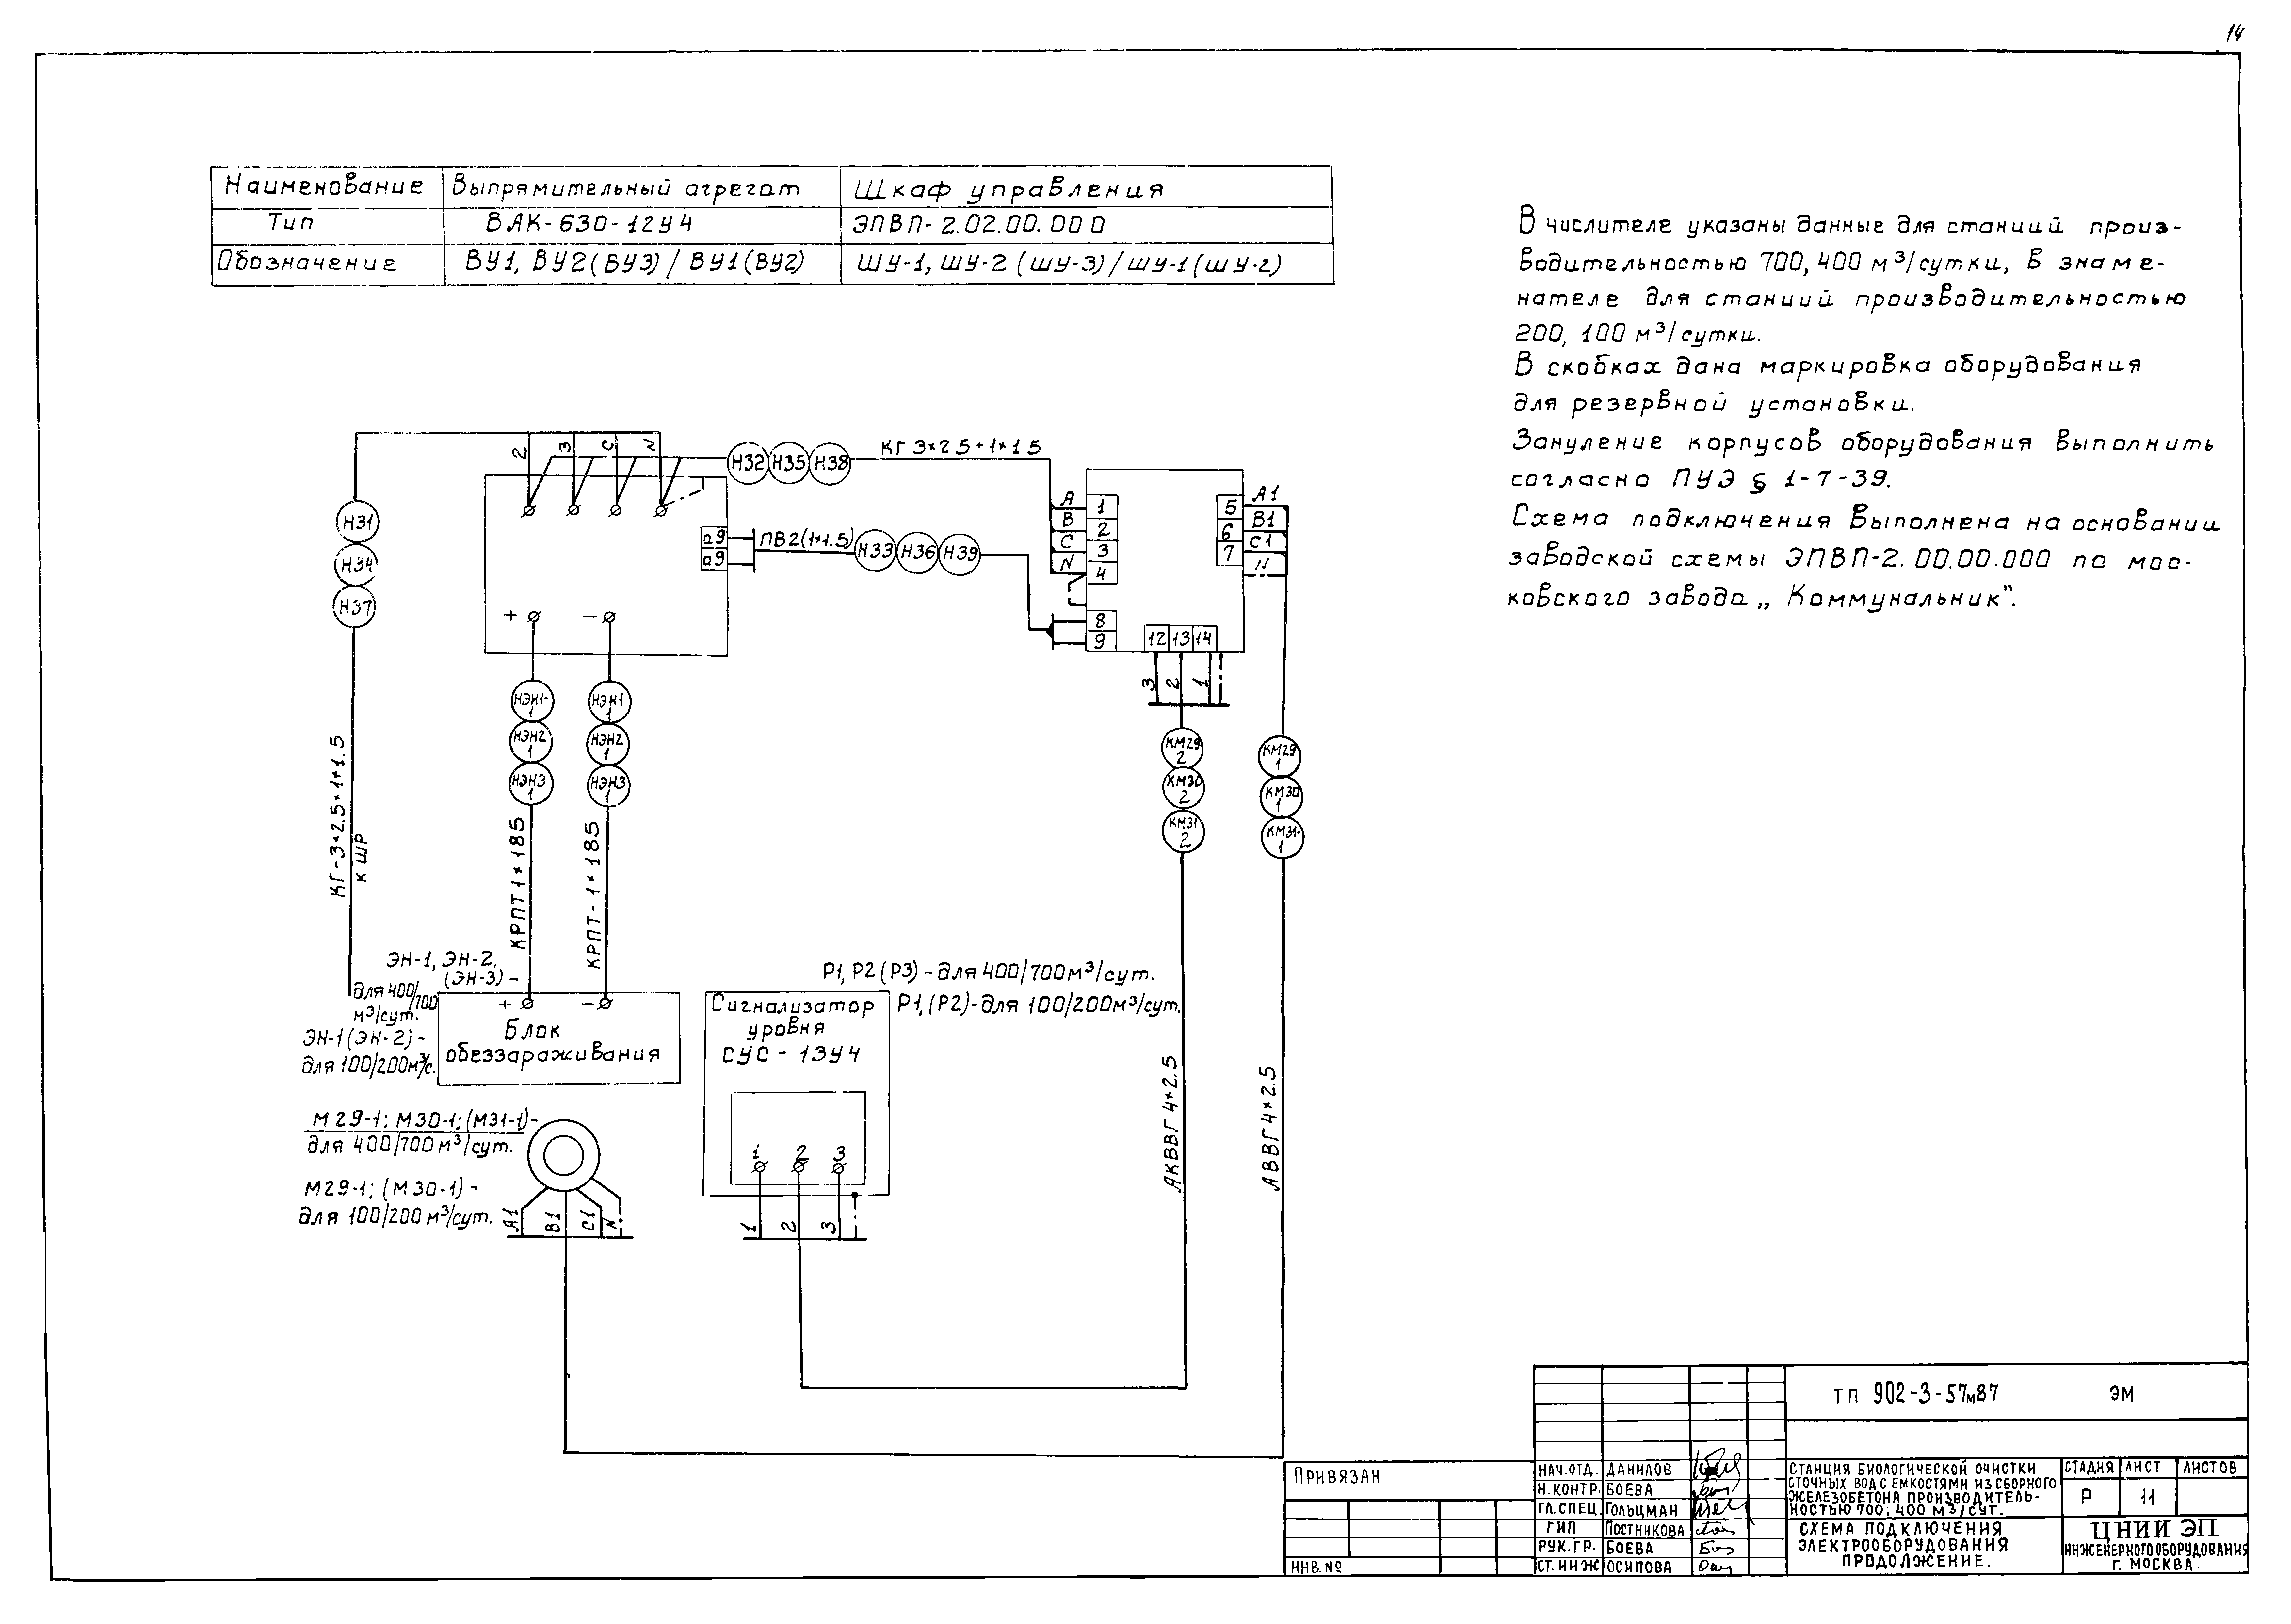 14
Наименование Выпрямительный агрегат Шкаф управления
Тип ВАК-630-12У4 ЭПВП-2.02.00.000
Обозначение ВУ1, ВУ2(ВУ3)/ВУ1(ВУ2) ШУ-1, ШУ-2(ШУ-3)/ШУ-1(ШУ-2)
В числителе указаны данные для станций произ-
водительностью 700, 400 м³/сутки, в знаме-
нателе для станций производительностью
200, 100 м³/сутки.
В скобках дана маркировка оборудования
для резервной установки.
Зануление корпусов оборудования выполнить
согласно ПУЭ § 1-7-39.
Схема подключения выполнена на основании
заводской схемы ЭПВП-2.00.00.000 по мос-
ковского завода „Коммунальник".
2 3 С N
Н32 Н35 Н38 КГ 3×2.5+1×1.5
Н31
Н34
Н37
а9
а9
ПВ2(1×1.5) Н33 Н36 Н39
А 1
В 2
С 3
N 4
8
9
5 А1
6 В1
7 С1
N
12 13 14
3 2 1
+ −
НЭН1-1 НЭН1 1
НЭН2 1 НЭН2 1
НЭН3 1 НЭН3 1
КМ29 2 КМ29 1
КМ30 2 КМ30 1
КМ31 2 КМ31-1
КГ-3×2.5+1×1.5
К ШР
КРПТ 1×185
КРПТ-1×185
ЭН-1, ЭН-2,
(ЭН-3)-
для 400/700
м³/сут.
ЭН-1(ЭН-2)-
для 100/200м³/с.
+ −
Блок
обеззараживания
Р1, Р2(Р3)-для 400/700м³/сут.
Р1,(Р2)-для 100/200м³/сут.
Сигнализатор
уровня
СУС-13У4
1 2 3
1 2 3
АКВВГ 4×2.5
АВВГ 4×2.5
М29-1; М30-1; (М31-1)-
для 400/700 м³/сут.
М29-1; (М30-1)-
для 100/200 м³/сут.
А1 В1 С1 N
ТП 902-3-57м87 ЭМ
Привязан
ИНВ.№
НАЧ.ОТД. ДАНИЛОВ
Н.КОНТР. БОЕВА
ГЛ.СПЕЦ. ГОЛЬЦМАН
ГИП ПОСТНИКОВА
РУК.ГР. БОЕВА
СТ.ИНЖ ОСИПОВА
СТАНЦИЯ БИОЛОГИЧЕСКОЙ ОЧИСТКИ
СТОЧНЫХ ВОД С ЕМКОСТЯМИ ИЗ СБОРНОГО
ЖЕЛЕЗОБЕТОНА ПРОИЗВОДИТЕЛЬ-
НОСТЬЮ 700; 400 М3/СУТ.
СТАДИЯ ЛИСТ ЛИСТОВ
Р 11
СХЕМА ПОДКЛЮЧЕНИЯ
ЭЛЕКТРООБОРУДОВАНИЯ
ПРОДОЛЖЕНИЕ.
ЦНИИ ЭП
ИНЖЕНЕРНОГО ОБОРУДОВАНИЯ
Г. МОСКВА.